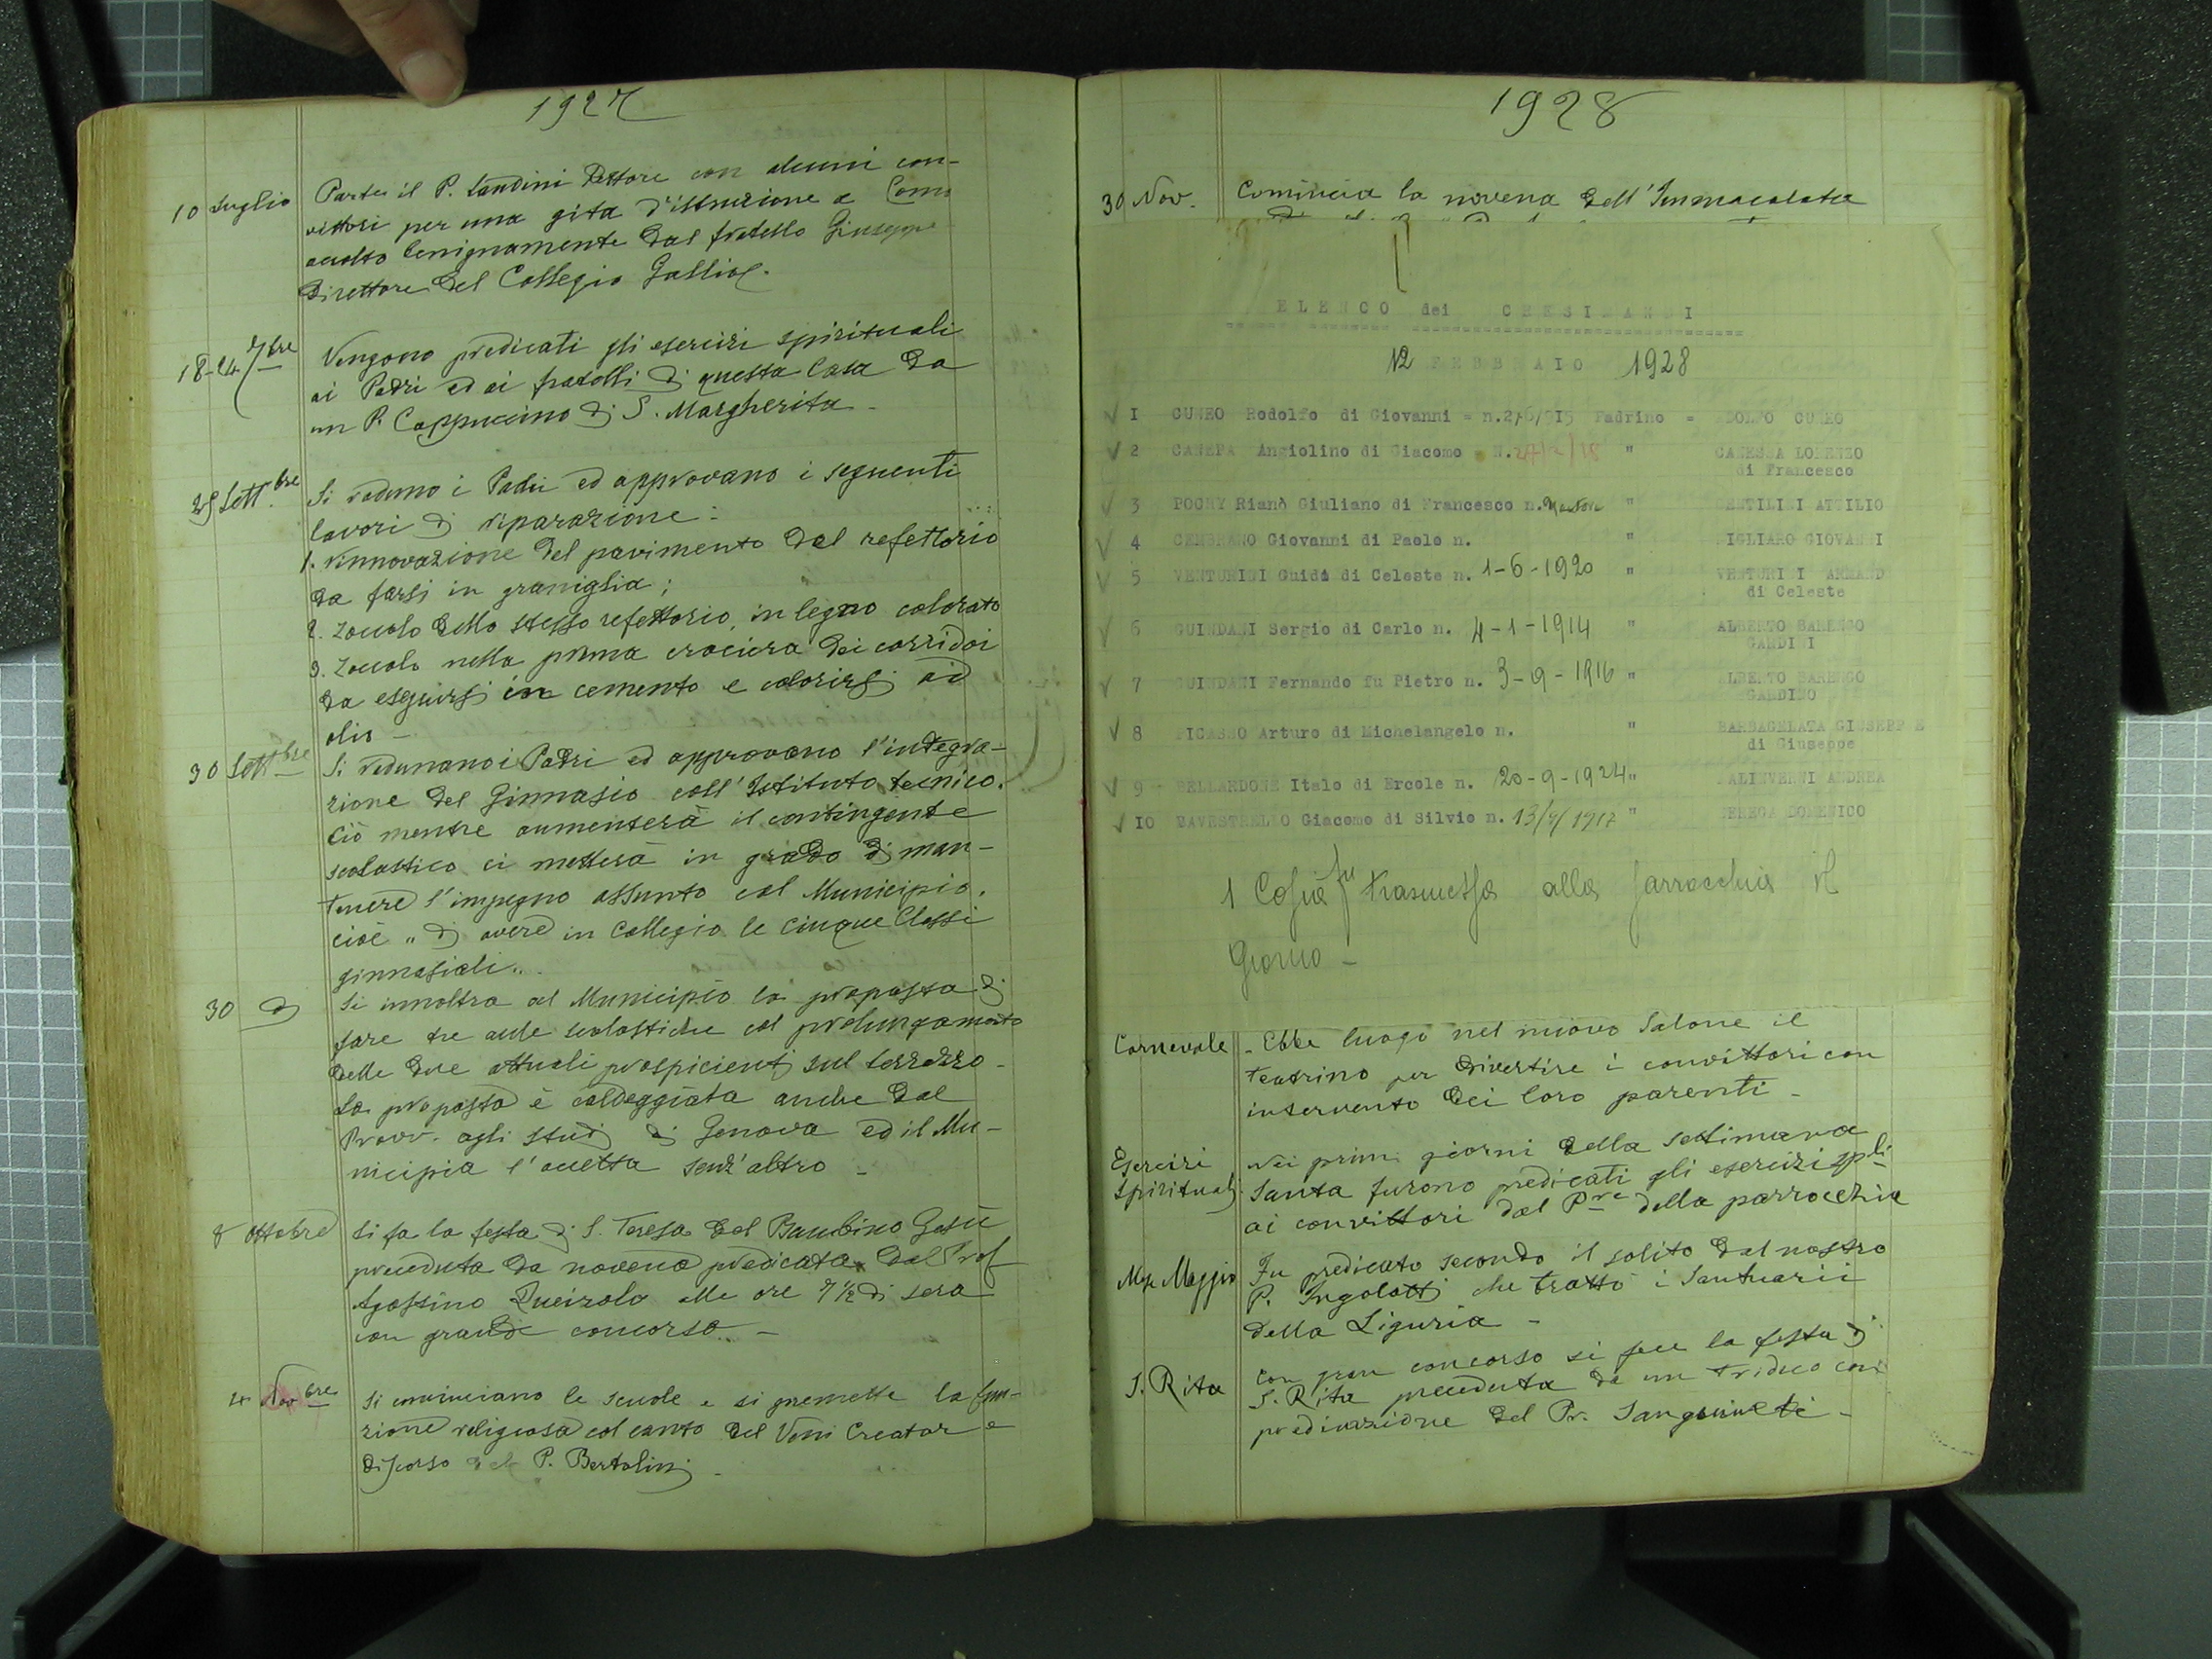 1927
10 Luglio Parte il P. Landini Rettore con alcuni con-
vittori per una gita d'istruzione a Como
accolto benignamente dal fratello Giuseppe
Direttore del Collegio Gallio.
18-24 7bre Vengono predicati gli esercizi spirituali
ai Padri ed ai fratelli di questa Casa da
un P. Cappuccino di S. Margherita -
25 Sett.bre Si radunano i Padri ed approvano i seguenti
lavori di riparazione:
1. rinnovazione del pavimento del refettorio
da farsi in graniglia;
2. zoccolo dello stesso refettorio, in legno colorato
3. zoccolo nella prima crociera dei corridoi
da eseguirsi in cemento e colorirsi ad
olio -
30 Sett.bre Si radunano i Padri ed approvano l'integra-
zione del Ginnasio coll'Istituto tecnico.
Ciò mentre aumenterà il contingente
scolastico ci metterà in grado di man-
tenere l'impegno assunto col Municipio,
cioè „ di avere in Collegio le cinque Classi
ginnasiali „.
30 d Si innoltra al Municipio la proposta di
fare tre aule scolastiche col prolungamento
delle due attuali prospicienti sul terrazzo -
La proposta è caldeggiata anche dal
Provv. agli studj di Genova ed il Mu-
nicipio l'accetta senz'altro -
8 Ottobre Si fa la festa di S. Teresa del Bambino Gesù
preceduta da novena predicata dal Prof
Agostino Queirolo alle ore 7 1/2 di sera
con grande concorso -
4 Nov bre Si cominciano le scuole e si premette la fun-
zione religiosa col canto del Veni Creator e
discorso del P. Bertolini -
1928
30 Nov. Comincia la novena dell'Immacolata
ELENCO dei CRESIMANDI
12 FEBBRAIO 1928
1 CUNEO Rodolfo di Giovanni = n.2/6/915 Padrino = ADOLFO CUNEO
2 CANEPA Angiolino di Giacomo N. " CANESSA LORENZO
di Francesco
3 POCHY Rianò Giuliano di Francesco n. " GENTILINI ATTILIO
4 CEMBRANO Giovanni di Paolo n. " FIGLIARO GIOVANNI
5 VENTURINI Guido di Celeste n. 1-6-1920 " VENTURINI ARMAND
di Celeste
6 GUINDANI Sergio di Carlo n. 4-1-1914 " ALBERTO BARENGO
GARDINI
7 GUINDANI Fernando fu Pietro n. 3-9-1916 " ALBERTO BARENGO
GARDINO
8 PICASSO Arturo di Michelangelo n. " BARBAGELATA GIUSEPPE
di Giuseppe
9 BELLARDONE Italo di Ercole n. 20-9-1924 " MALINVERNI ANDREA
10 RAVESTRELLO Giacomo di Silvio n. 13/4/1917 " DEREGA DOMENICO
1 Copia fu trasmessa alla parrocchia il
Giorno -
Carnevale - Ebbe luogo nel nuovo Salone il
teatrino per divertire i convittori con
intervento dei loro parenti -
Esercizi Nei primi giorni della settimana
Spirituali santa furono predicati gli esercizi spli
ai convittori dal Pre della parrocchia
Mese Maggio Fu predicato secondo il solito dal nostro
P. Ingolotti che trattò i Santuarii
della Liguria -
S. Rita Con gran concorso si fece la festa di
S. Rita preceduta da un triduo con
predicazione del Pr. Sanguineti -